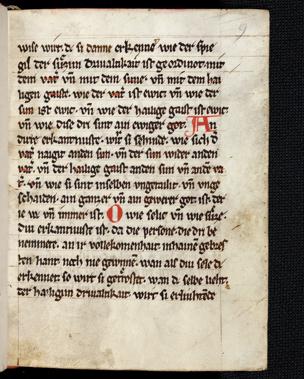 9
wise wirt. dc si danne erkennet wie der spie
gil der sun driualtikait ist geordinot. mit
dem vat vn mit dem sune. vn mit dem hai
ligen gaist. wie der vat ist ewic. vn wie der
sun ist ewic. vn wie der hailige gaist ist ewic.
vn wie dise dri sint ain ewiger got. An
dirre erkantnuste. wirt si sehinde. wie sich d
vat naigit anden sun. vn der sun wider anden
vat. vn der hailige gaist anden sun vn ande va
t. vn wie si sint inselben vngetailit. vn vnge
schaiden. ain ganzer vn ain gewerer got. ist der
ie w vn immer ist. O wie selic vn wie suze.
diu erkantnuste ist. da die persone die dri be
nemmete. an ir vollekomenhait inhaine gebres
ten hant noch nie gewinnet. wan als diu sele dc
erkennet so wirt si getrostet. wan dc selbe lieht.
der hailigun driualtikait. wirt si erluhtende